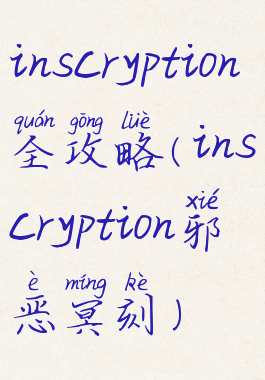 inscryption
quán gōng lüè
全攻略(ins
cryption邪
xié
è míng kè
恶冥刻)